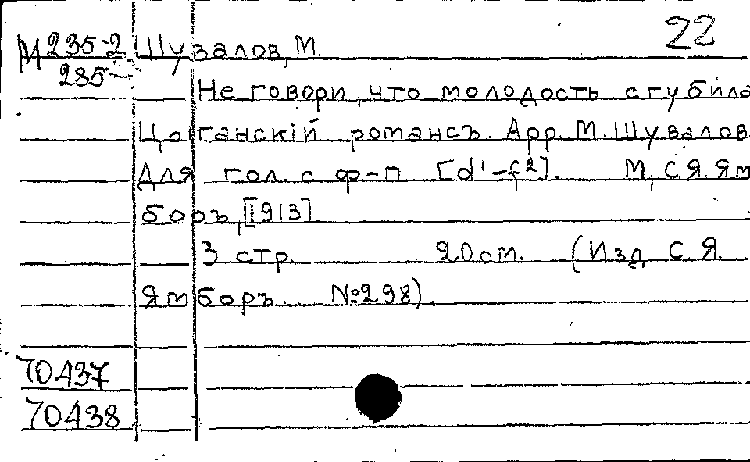 22
М 235-2 Шувалов, М.
285
Не говори, что молодость сгубила
Цыганскій романсъ. Арр. М. Шувалов
Для гол. с ф-п [d'-f²]. М, С.Я. Ям
боръ, [1913]
3 стр. 20 cm. (Изд. С. Я.
Ямборъ № 298)
70437
70438